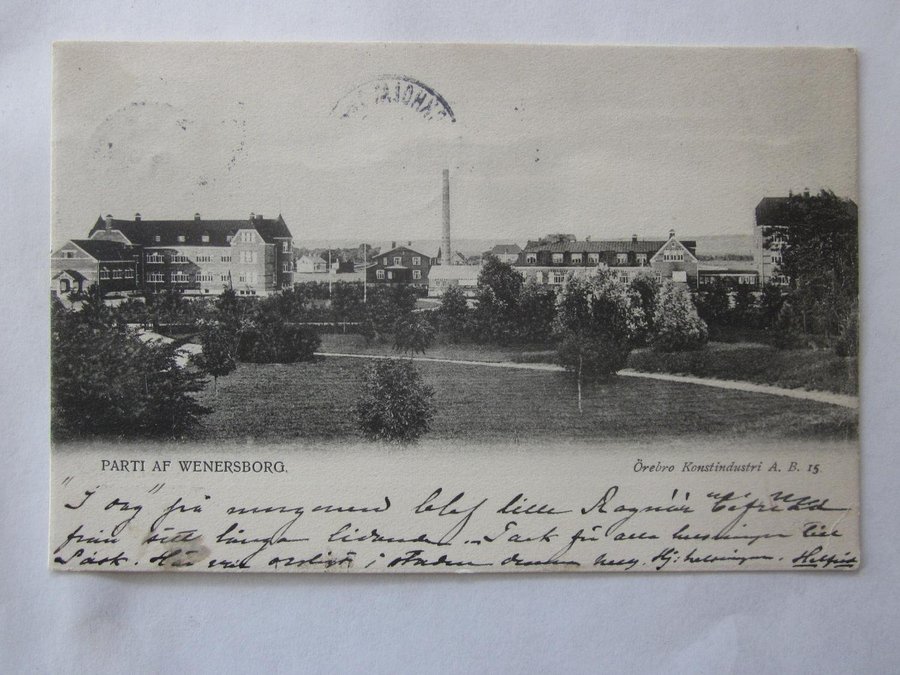 PARTI AF WENERSBORG.
Örebro Konstindustri A. B. 15
"I dag" på morgonen blef lille Ragnar befriad
från sitt långa lidande. Tack för alla helsningar till
i staden denna Hj: helsningar. Helfrid